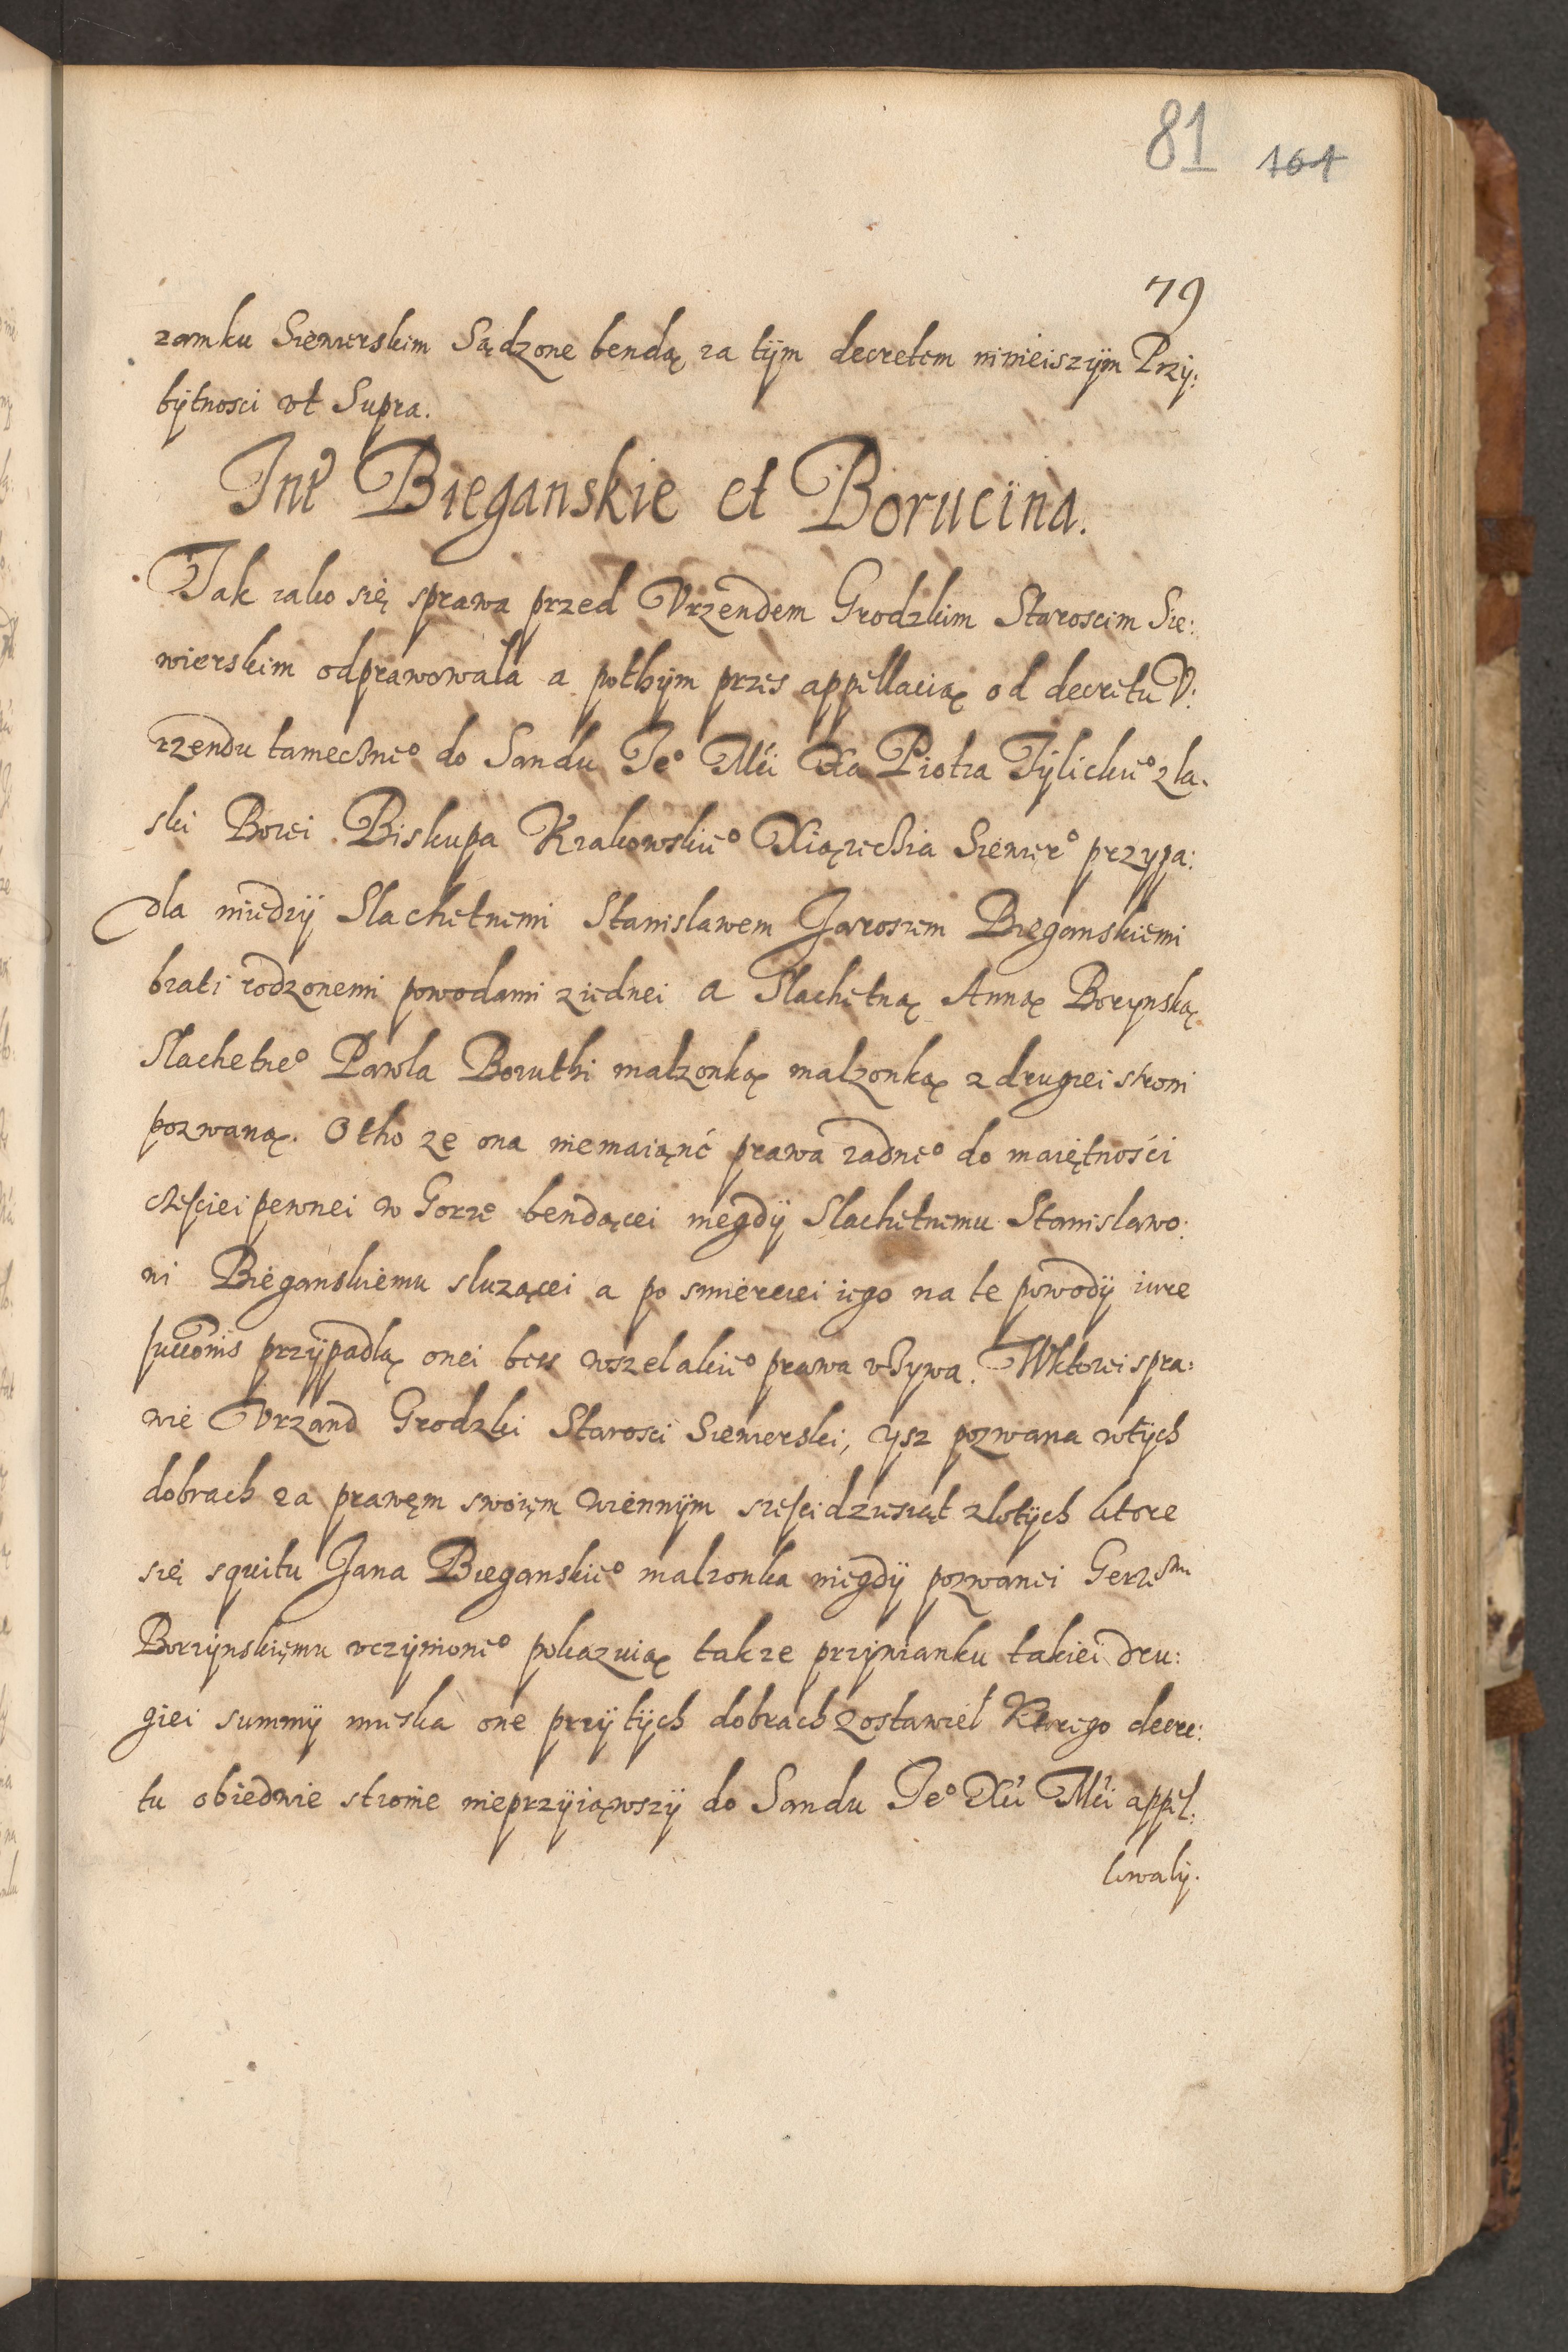 81 164
79
zamku Siewierskim Sądzone bendą za tÿm decretem ninieiszÿm Przÿ:
bÿtnosci vt Supra.
Intr Bieganskie et Borucina.
Tak iako się sprawa przed Vrzendem Grodzkim Staroscim Sie:
wierskim odprawowala a pothÿm przes appellacią od decretu V:
rzendu tamecznео do Sandu Jeo Mći Xa Piotra Tÿlickieo z la:
ski Bozei Biskupa Krakowskieo Xiązecßia Siewiero przypa:
dla miedzÿ Slachetnemi Stanislawem Jaroszem Bieganskiemi
brati rodzonemi powodami ziednei a Slachetną Anną Borynską
Slachetneo Pawla Boruthi malzonką malzonką z drugiei stroni
pozwaną. Otho ze ona niemaiąnć prawa zadneo do maiętnośći
częsciei pewnei w Gorze bendącei niegdÿ Slachetnemu Stanislawo:
wi Bieganskiemu sluzącei a po smierciei iego na te powodÿ iure
succonis przÿpadlą onei bess wszelakieo prawa vßywa. Wktorei spra:
wie Vrzand Grodzki Starosci Siewierski, ysz pozwana wtÿch
dobrach za prawęm swoięm wiennÿm sześcidziesiąt zlotÿch ktore
się squitu Jana Bieganskieo malzonka niegdÿ pozwanei Gerzem
Borzÿnskięmu vczÿnioneo pokazuią takze przÿwianku takiei dru:
giei summÿ mieska one przÿ tÿch dobrach zostawiel Ktorego decre:
tu obiedwie stronie nieprzÿiąwszÿ do Sandu Jeo Xći Mći appel:
lowalÿ.